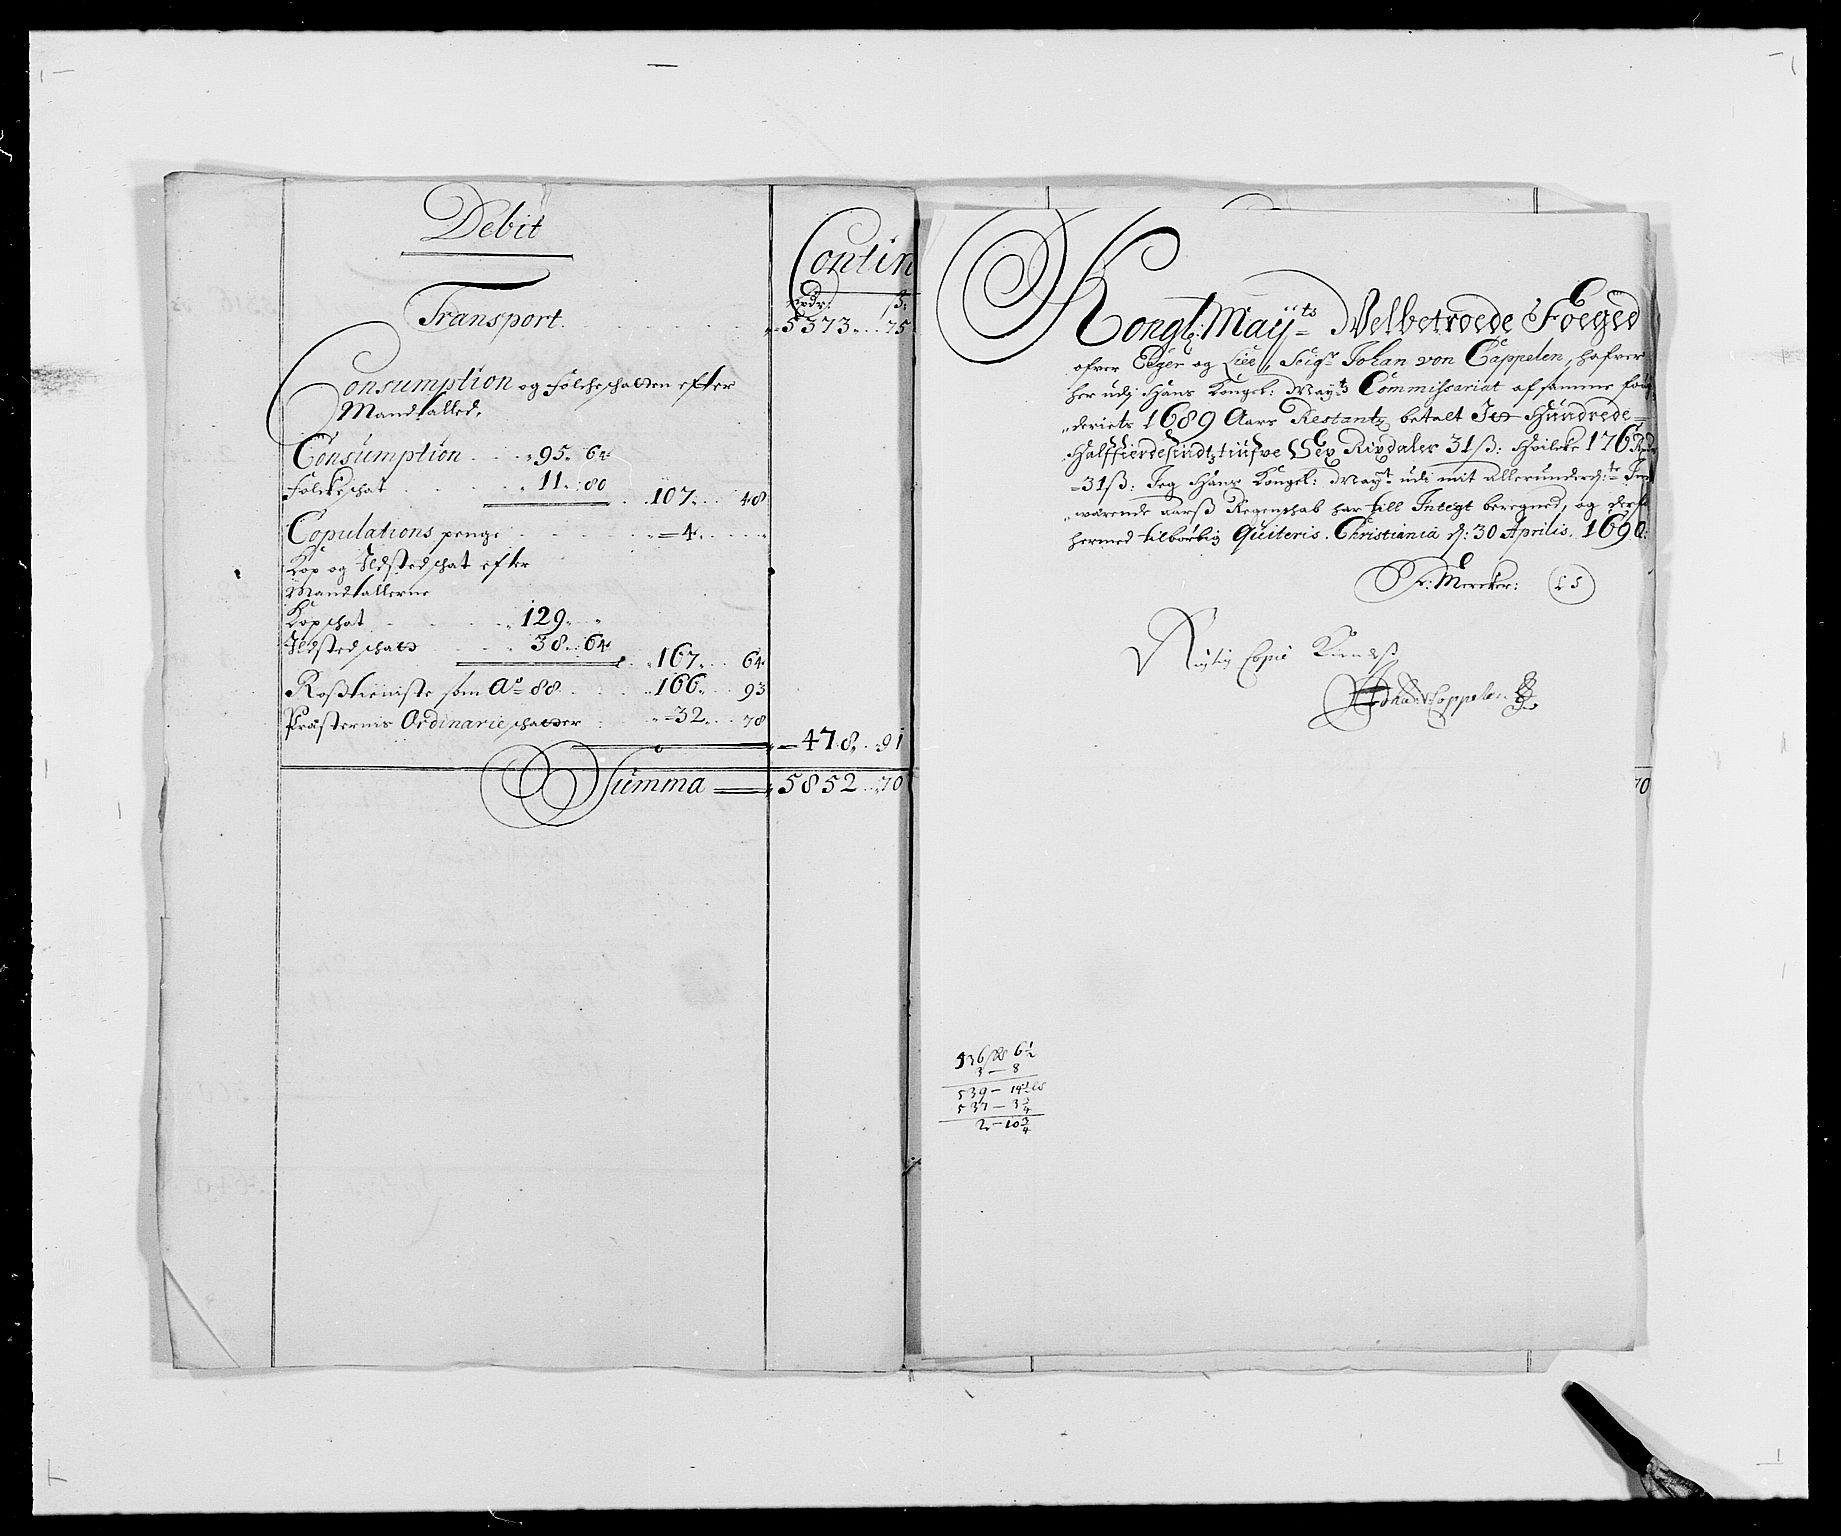 Debit
Contin
Rxdr: ß:
Transport. 5373 .. 75
Consumption og Folcheschatten efter
Mandtalled.
Consumption 95. 64
Folcheschat 11. 80 107. 48
Copulations penge 4.
Kop og Ildstedschat efter
Mandtallerne
Kopschat 129.
Ildstedschatt 38. 64 167. 64
Roßtieniste som Aᵒ 88 166. 93
Præsternis Ordinarie schatter 32. 78
478. 91
Summa 5852. 70
Kongl: Mayˢᵗˢ Welbetroede Foeged
ofver Eiger og Liee, Seigʳ Johan von Cappelen, hafver
her udj Hans Kongel: Mayᵗˢ Commissariat af samme fog
deriets 1689 Aars Restantz betalt Jet Hundrede
Halffierdesindtztiufve Sex Rixdaler 31 ß: Hvilcke 176 Rdr
31 ß: Jeg Hans Kongel: Mayᵗ udi mit allerunderdᵗᵉ In
værende aarß Regenschab har till Integt beregned, og derf
hermed tilbørlig Quiteris. Christiania d: 30 Aprilis. 1690:
H: Mercker: LS
Rigtig Copie Kiendes
Johan v: Cappelen
70
536 6½
3 — 8
539 — 14½
537 — 3¾
2 — 10¾